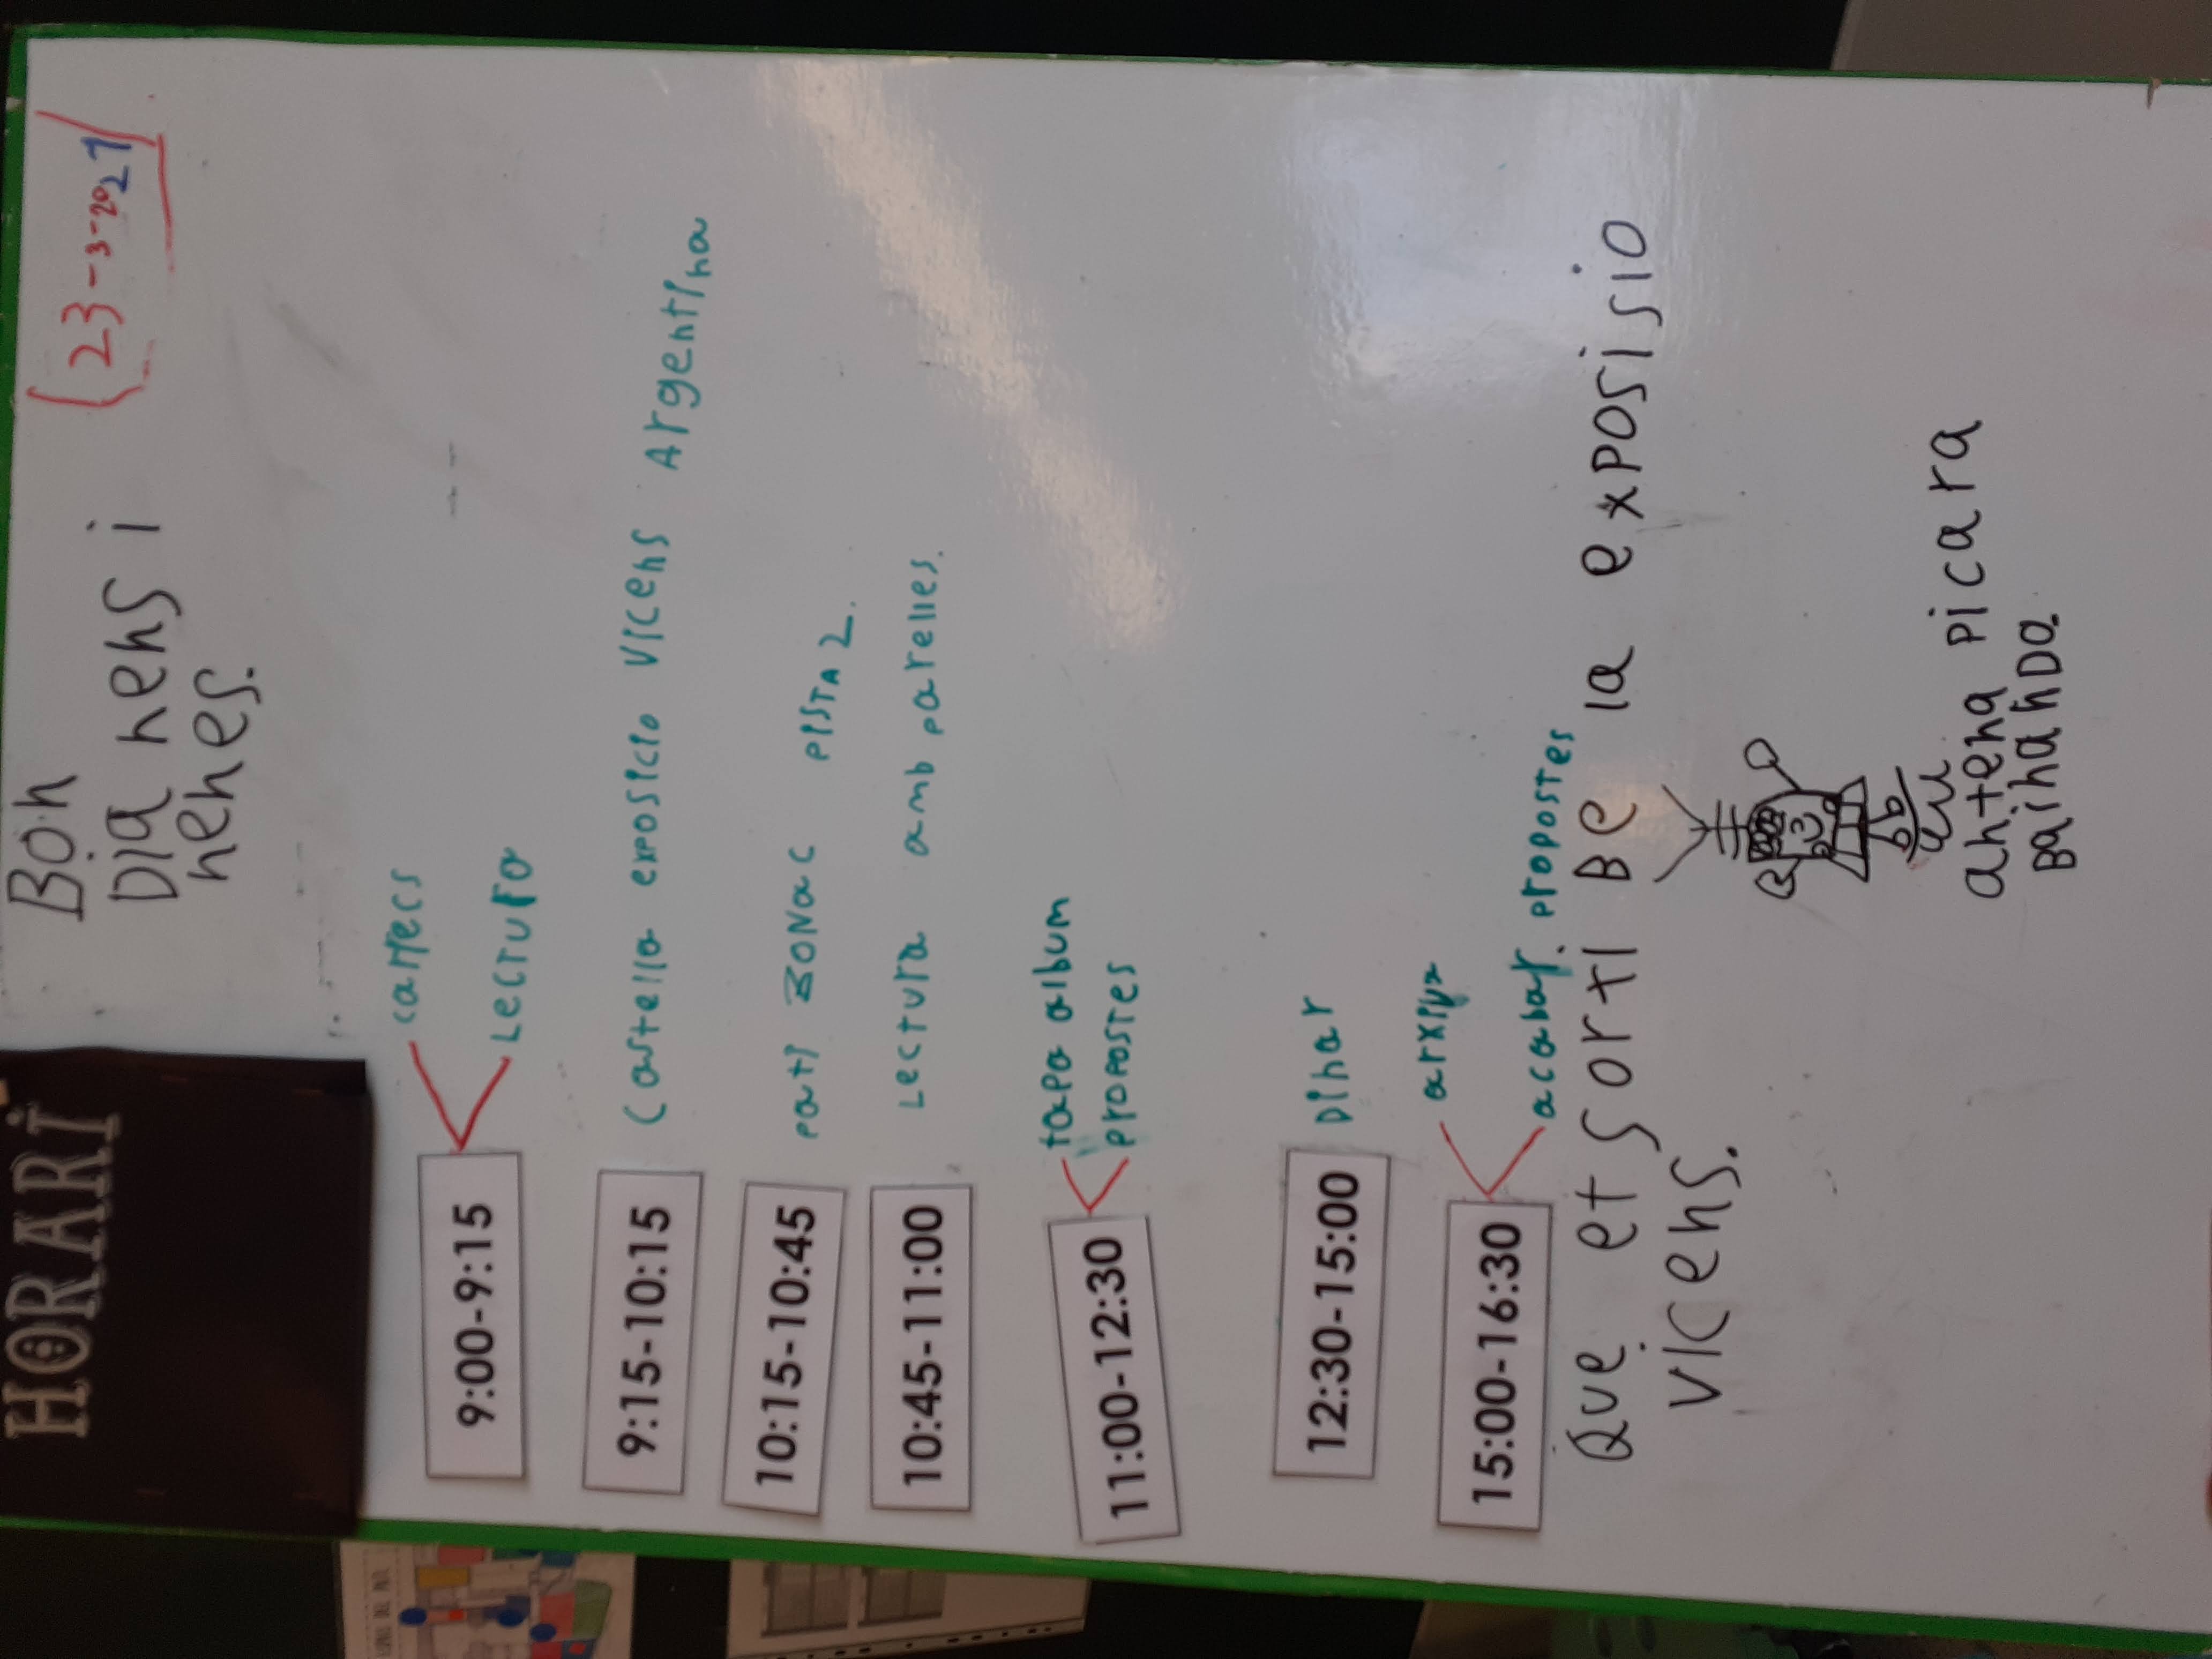 HORARI
Boh
Dia hehs i
hehes.
(23-3-2021)
9:00-9:15
carrecs
Lectura
9:15-10:15 Castella exposicio Vicehs Argentiha
10:15-10:45 pati ZONA C PISTA 2.
10:45-11:00 Lectura amb parelles.
11:00-12:30
tapa album
propostes
12:30-15:00 Dihar
15:00-16:30
arxivar
acabar propostes
Que et sorti Be la exposisio
Vicehs.
ahteha picara
Baihahda